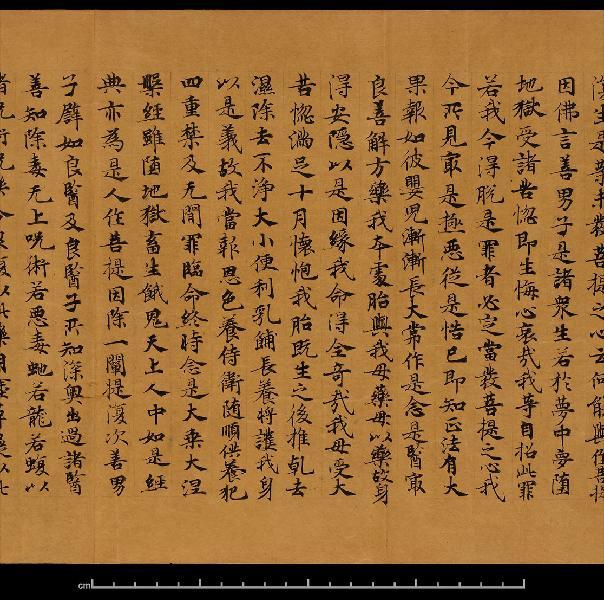 生是等未發菩提之心云何能與作菩提
因佛言善男子是諸衆生若於夢中夢墮
地獄受諸苦惱即生悔心哀哉我等自招此罪
若我今得脱是罪者必定當發菩提之心我
今所見最是極惡從是悟已即知正法有大
果報如彼嬰兒漸漸長大常作是念是醫最
良善解方藥我本處胎與我母藥母以藥故身
得安隱以是因緣我命得全奇哉我母受大
苦惱滿足十月懷抱我胎既生之後推乾去
濕除去不淨大小便利乳餔長養將護我身
以是義故我當報恩色養侍衛随順供養犯
四重禁及无間罪臨命終時念是大乘大涅
槃經雖墮地獄畜生餓鬼天上人中如是經
典亦為是人作菩提因除一闡提復次善男
子譬如良醫及良醫子所知深奧出過諸醫
善知除毒无上呪術若惡毒虵若龍若蝮以
cm